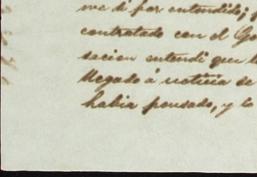 me di por entendido; y
contratado con el Go
sacion entendi que l
llegado á noticia de
habia pensado, y lo